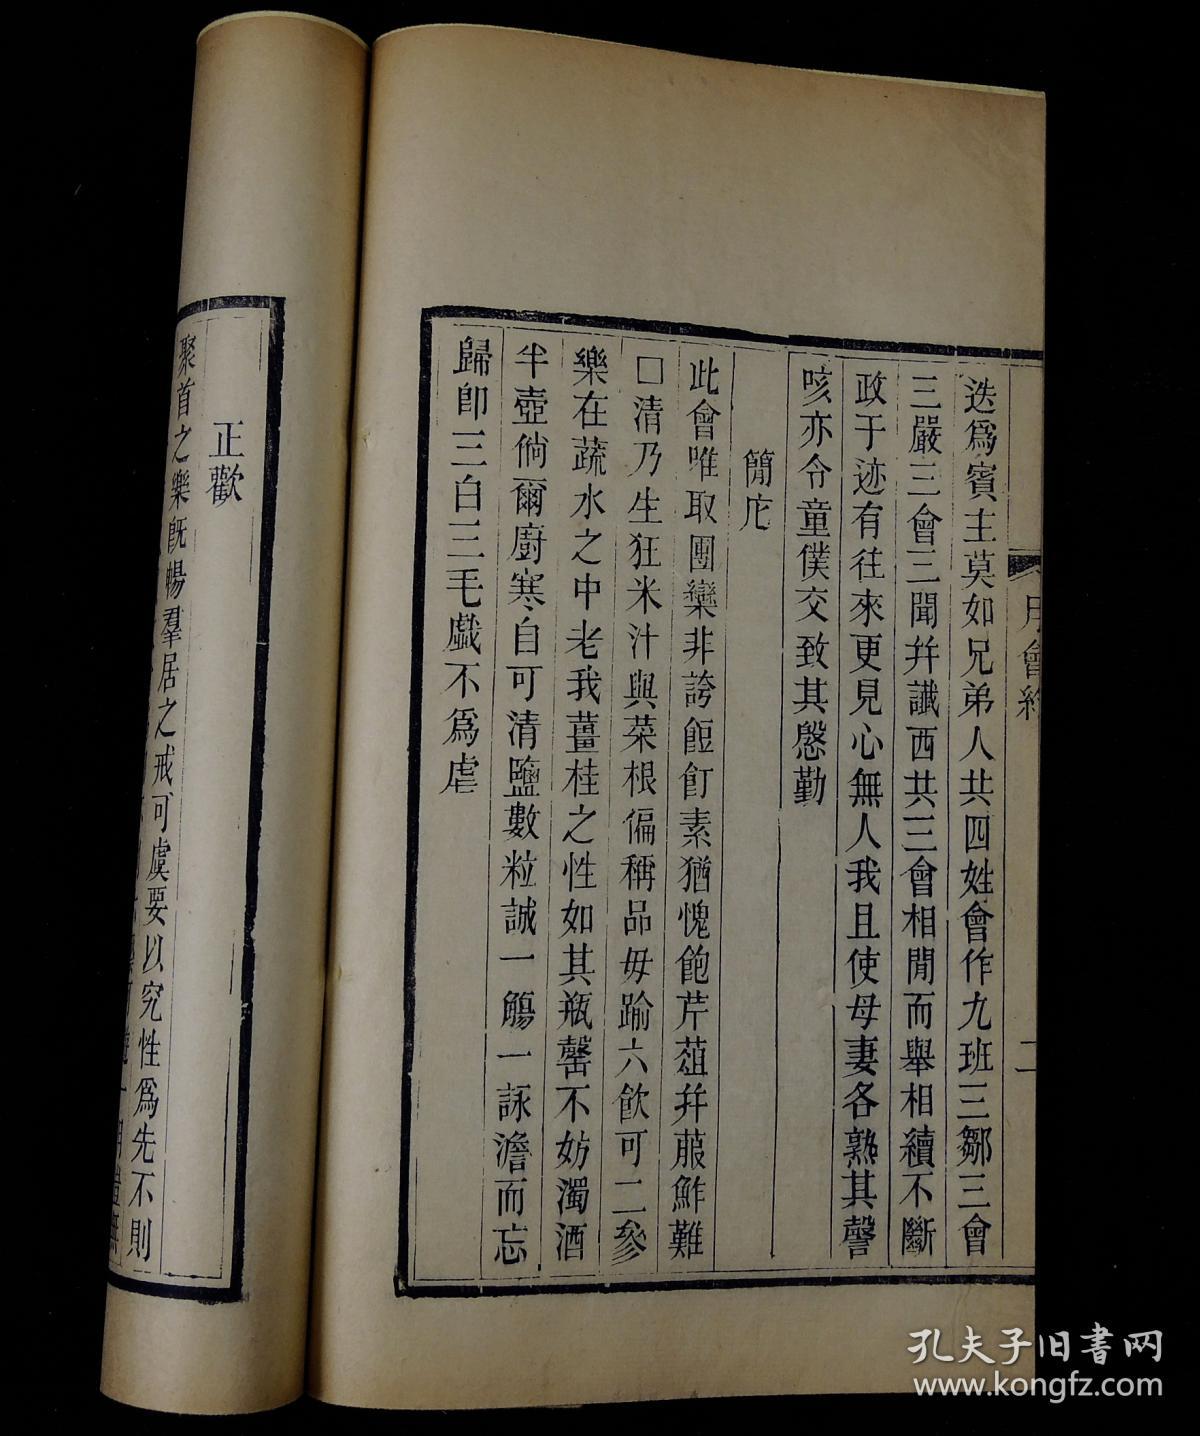 月會約
二
迭爲賓主莫如兄弟人共四姓會作九班三鄒三會
三嚴三會三聞幷讖西共三會相閒而舉相續不斷
政于迹有往來更見心無人我且使母妻各熟其謦
咳亦令童僕交致其慇勤
簡庀
此會唯取團欒非誇飽飣素猶愧飽芹葅幷菔鮓難
□清乃生狂米汁與菜根偏稱品毋踰六飲可二參
樂在蔬水之中老我薑桂之性如其瓶罄不妨濁酒
半壺倘爾廚寒自可清鹽數粒誠一觴一詠澹而忘
歸即三白三毛戲不爲虐
正歡
聚首之樂旣暢羣居之戒可虞要以究性爲先不則
孔夫子旧书网
www.kongfz.com